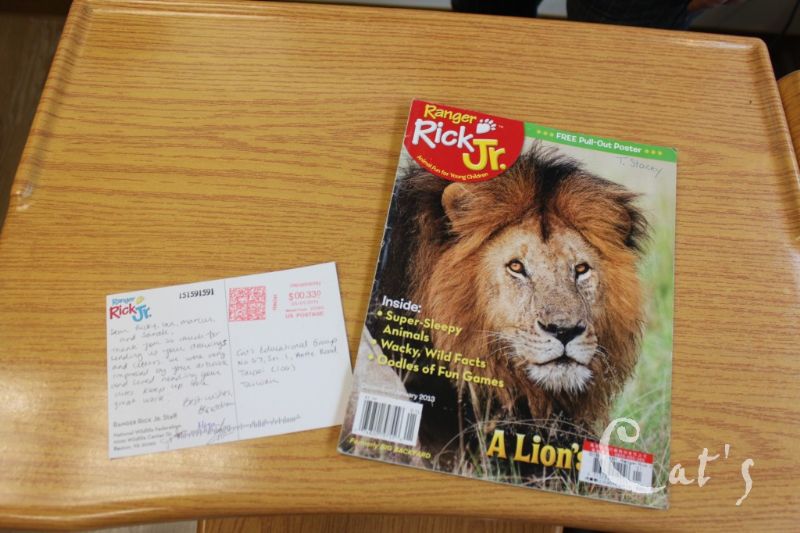 Ranger
Rick Jr.
151591591
$ 00.33⁰
US POSTAGE
Dear Ricky, Ian, Marcus,
and
Thank you so much for
sending us your drawings
and letters. We were very
impressed by your artwork
and loved reading your
notes. Keep up the
great work.
Best wishes
RANGER RICK JR. Staff
National Wildlife Federation
Reston, VA
Cat's Educational Group
No. 57, Sec. 1, Road
Taipei
Taiwan
Ranger
Rick Jr.
Animal Fun for Young Children
FREE Pull-Out Poster
T. Stacey
Inside:
• Super-Sleepy
Animals
• Wacky, Wild Facts
• Oodles of Fun Games
2013
Formerly BIG BACKYARD
A Lion's
Cat's